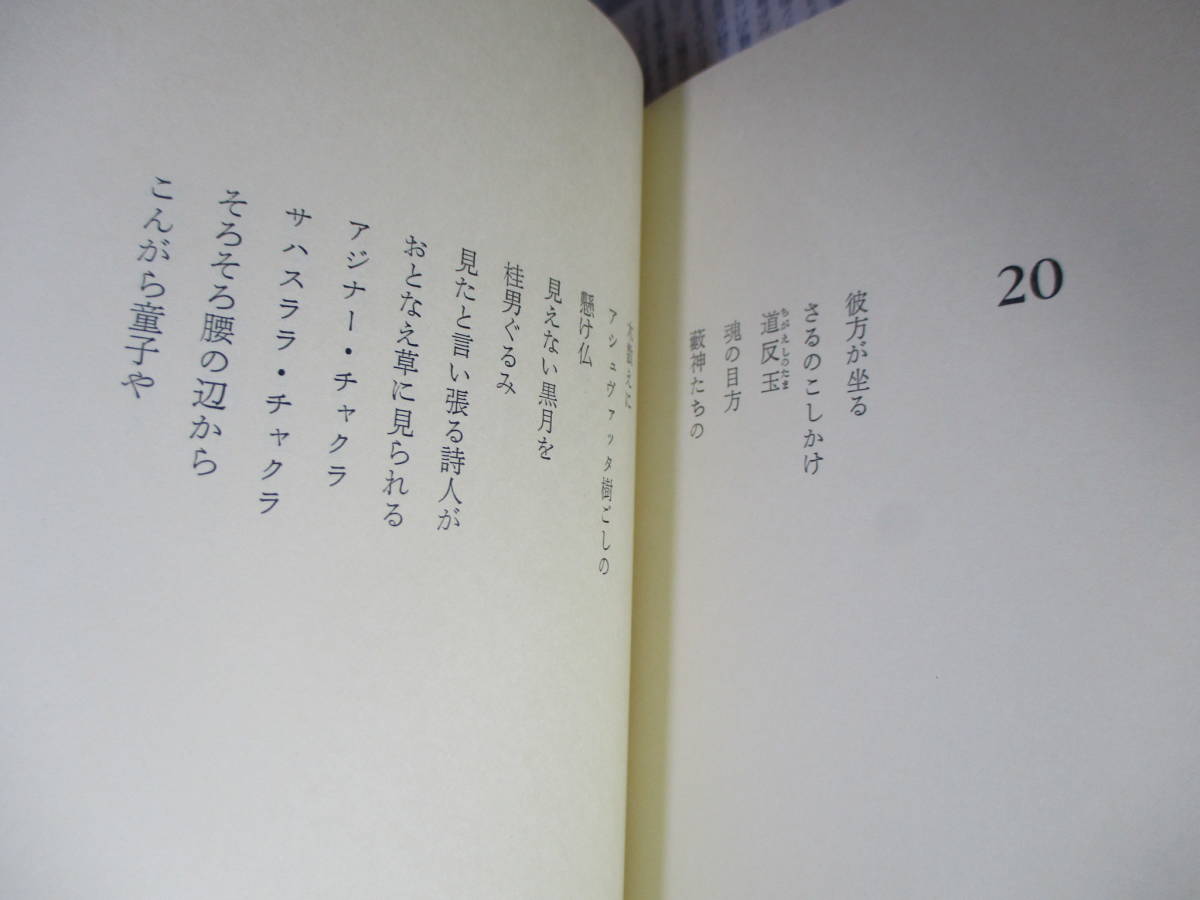 20
彼方が坐る
さるのこしかけ
道反玉
ちがえしのたま
魂の目方
藪神たちの
アシュヴァッタ樹ごしの
懸け仏
見えない黒月を
桂男ぐるみ
見たと言い張る詩人が
おとなえ草に見られる
アジナー・チャクラ
サハスララ・チャクラ
そろそろ腰の辺から
こんがら童子や